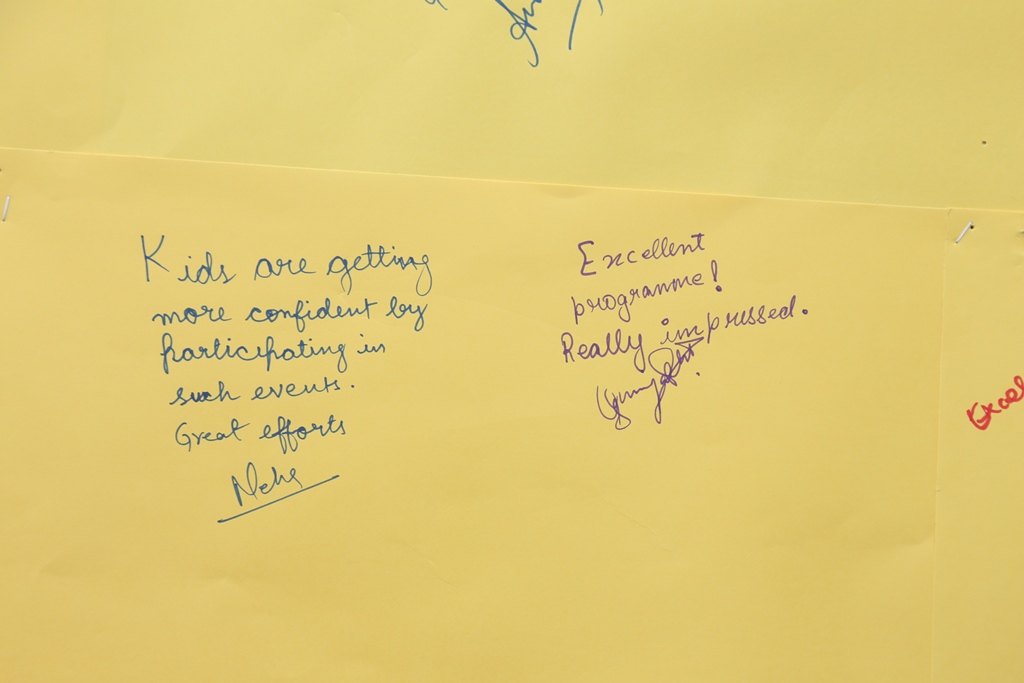 Kids are getting
more confident by
participating in
such events.
Great efforts
Neha
Excellent
programme!
Really impressed.